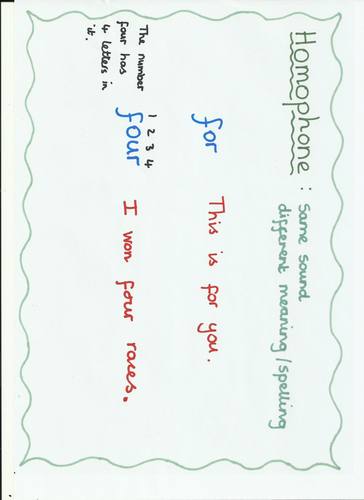 Homophone : Same sound
different meaning/spelling
for This is for you.
1 2 3 4
four I won four races.
The number
four has
4 letters in
it.